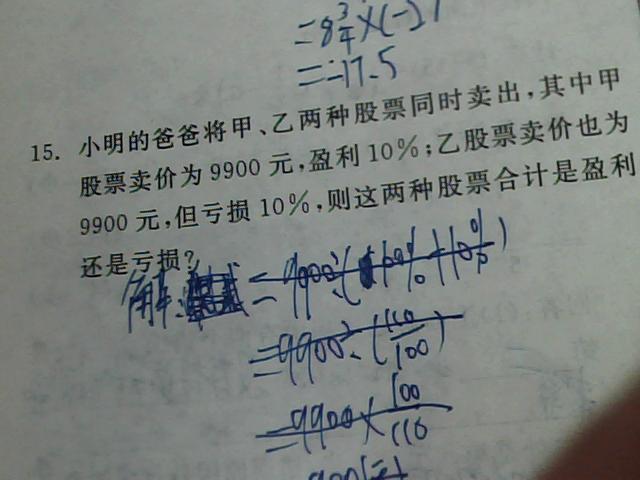 =8 3/4×(-2)
=-17.5
15. 小明的爸爸将甲、乙两种股票同时卖出,其中甲
股票卖价为9900元,盈利10%;乙股票卖价也为
9900元,但亏损10%,则这两种股票合计是盈利
还是亏损?
解: =9900÷(100%+10%)
=9900÷(110/100)
=9900×100/110